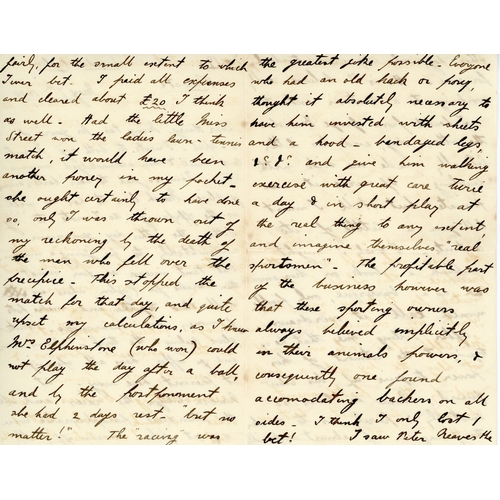 fairly, for the small extent to which
I ever bet. I paid all expenses
and cleared about £20 I think
as well - Had the little Miss
Street won the ladies lawn-tennis
match, it would have been
another poney in my pocket -
she ought certainly to have done
so, only I was thrown out of
my reckoning by the death of
the man who fell over the
precipice - This stopped the
match for that day, and quite
upset my calculations, as I knew
Mrs Elphinstone (who won) could
not play the day after a ball,
and by the postponment
she had 2 days rest - "but no
matter!" The "racing was
the greatest joke possible - Everyone
who had an old hack or pony,
thought it absolutely necessary to
have him invested with sheets
and a hood - bandaged legs,
&c &c and give him walking
exercise with great care twice
a day & in short play at
the real thing to any extent
and imagine themselves "real
sportsmen" - The profitable part
of the business however was
that these sporting owners
always believed implicitly
in their animals powers, &
consequently one found
accomodating backers on all
sides - I think I only lost 1
bet! I saw Peter Reaves He